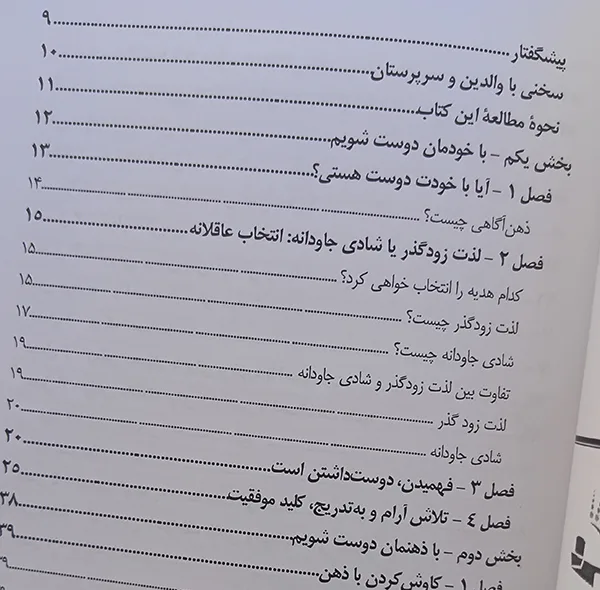 پیشگفتار ۹
سخنی با والدین و سرپرستان ۱۰
نحوهٔ مطالعهٔ این کتاب ۱۱
بخش یکم - با خودمان دوست شویم ۱۲
فصل ۱ - آیا با خودت دوست هستی؟ ۱۳
ذهن‌آگاهی چیست؟ ۱۴
فصل ۲ - لذت زودگذر یا شادی جاودانه: انتخاب عاقلانه ۱۵
کدام هدیه را انتخاب خواهی کرد؟ ۱۵
لذت زودگذر چیست؟ ۱۵
شادی جاودانه چیست؟ ۱۷
تفاوت بین لذت زودگذر و شادی جاودانه ۱۹
لذت زود گذر ۱۹
شادی جاودانه ۲۰
فصل ۳ - فهمیدن، دوست‌داشتن است ۲۰
فصل ۴ - تلاش آرام و به‌تدریج، کلید موفقیت ۲۵
بخش دوم - با ذهنمان دوست شویم ۳۸
فصل ۱ - کاوش‌کردن با ذهن ۳۹